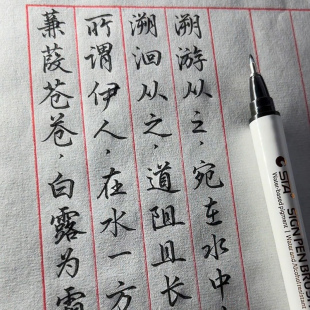 蒹葭苍苍,白露为霜
所谓伊人,在水一方
溯洄从之,道阻且长
溯游从之,宛在水中
STA SIGN PEN BRUS
Water based pigment | Water and